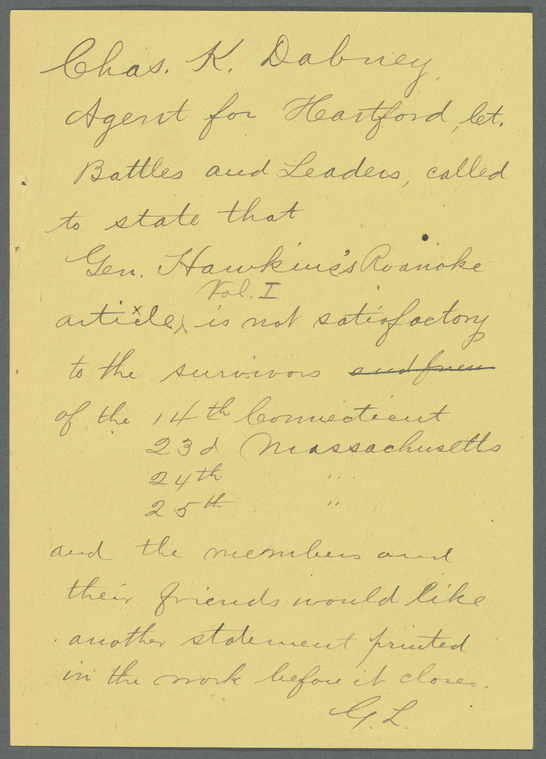 Chas. K. Dabney,
Agent for Hartford, Ct.
Battles and Leaders, called
to state that
Gen. Hawkins's Roanoke
Vol. I
article, is not satisfactory
to the survivors
of the 14th Connecticut
23d Massachusetts
24th "
25th "
and the members and
their friends would like
another statement printed
in the work before it closes.
G. L.